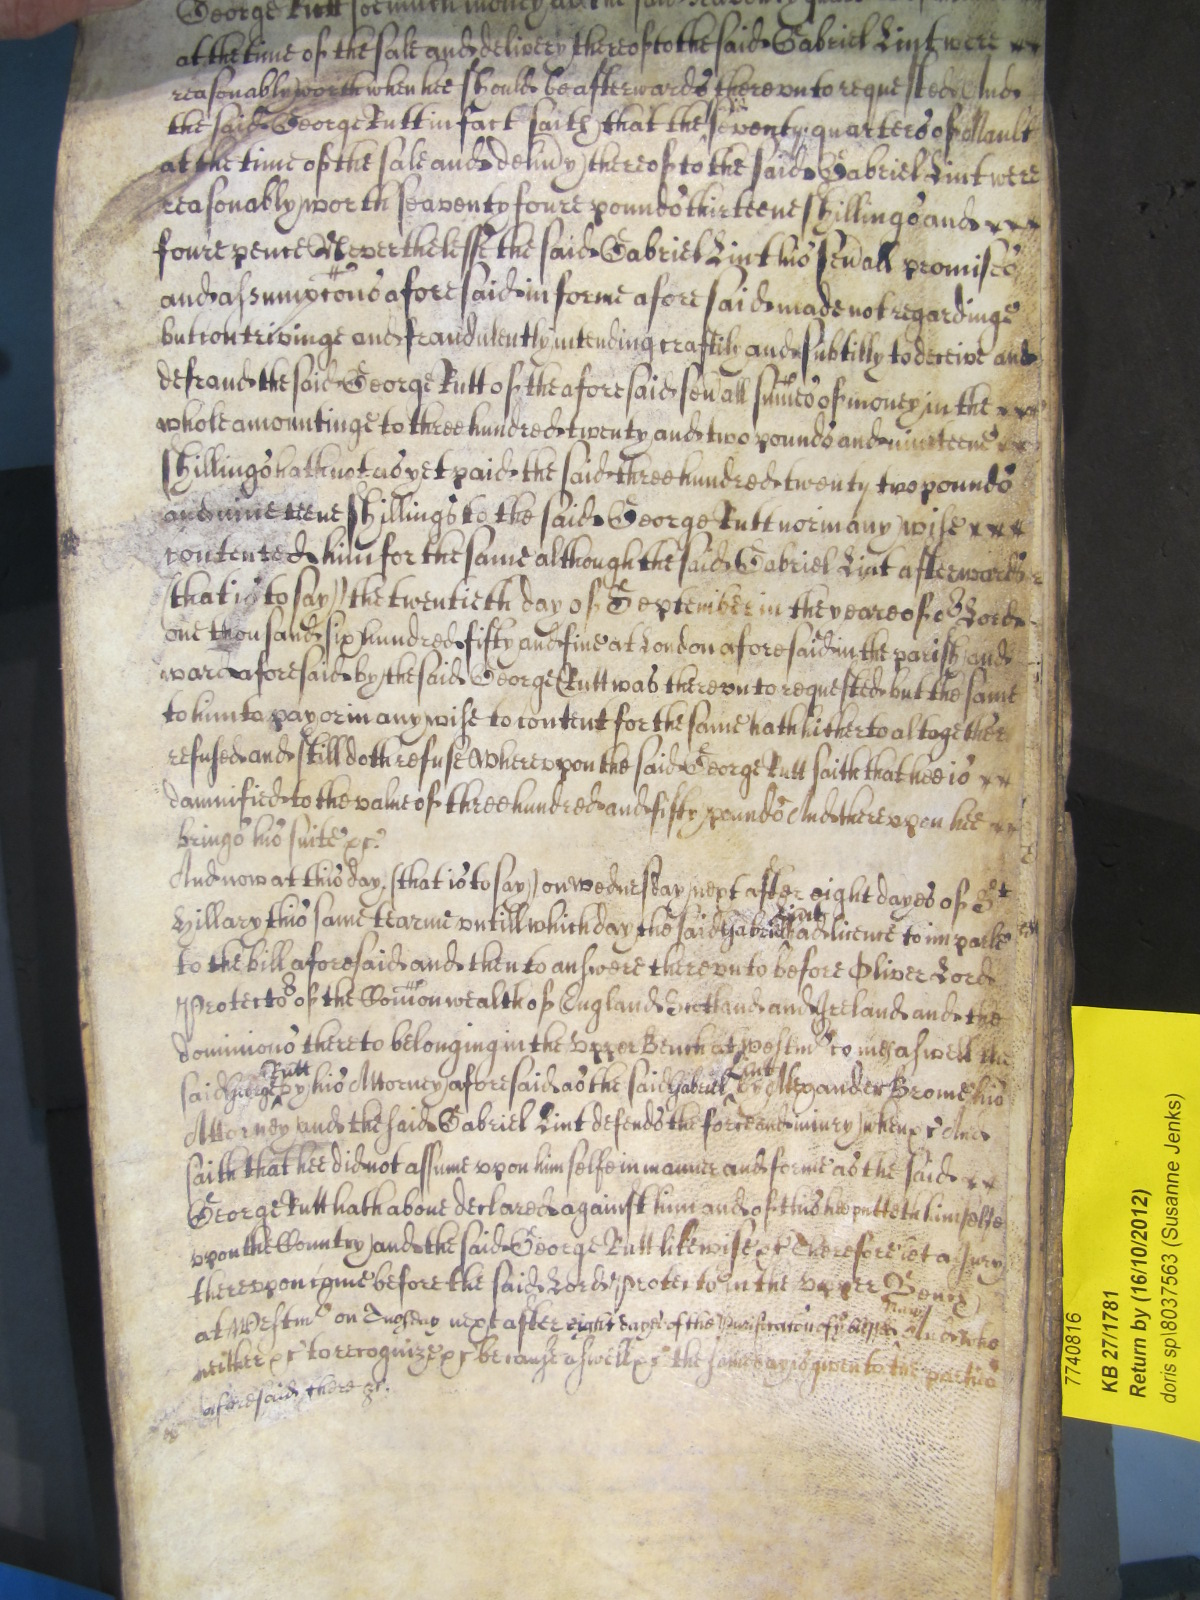 George Rutt soe much money as the said
at the time of the sale and delivery thereof to the said Gabriel Lint were
reasonably worth when hee should be afterwards therevnto requested And
the said George Rutt in fact saith that the seventy quarters of Mault
at the time of the sale and delivy thereof to the said Gabriel Lint were
reasonably worth seaventy foure pounds thirteene shillings and
foure pence Neverthelesse the said Gabriel Lint his sevall promises
and assumpcons aforesaid in forme aforesaid made not regardinge
but contrivinge and fraudulently intending craftily and subtilly to deceive and
defraud the said George Rutt of the aforesaid sevall sumes of money in the
whole amountinge to three hundred twenty and two pounds and nineteene
shillings hath not as yet paid the said three hundred twenty two pounds
and nineteene shillings to the said George Rutt nor in any wise
contented him for the same although the said Gabriel Lint afterwards
(that is to say) the twentieth day of September in the yeare of or Lord
one thousand six hundred fifty and five at London aforesaid in the parish and
ward aforesaid by the said George Rutt was therevnto requested but the same
to him to pay or in any wise to content for the same hath hitherto altogether
refused and still doth refuse Wherevpon the said George Rutt saith that hee is
damnified to the value of three hundred and fifty pounds And therevpon hee
brings his suite &c.
And now at this day (that is to say) on Wednesday next after eight dayes of St
Hillary this same tearme vntill which day the said Gabriel Lint had licence to imparle
to the bill aforesaid and then to answere therevnto before Oliver Lord
Protector of the Comon wealth of England Scotland and Ireland and the
dominions thereto belonging in the Vpper Bench at Westmr comes aswell the
said George Rutt by his Attorney aforesaid as the said Gabriel Lint by Alexander Brome his
Attorney and the said Gabriel Lint defends the force and iniury when &c And
saith that hee did not assume vpon himselfe in manner and forme as the said
George Rutt hath aboue declared against him and of this hee putteth himselfe
vpon the Country and the said George Rutt likewise &c Therefore let a Jury
therevpon come before the said Lord Protector in the vpper Bench
at Westmr on Tuesday next after eight dayes of the Purificacon of Mary And who
neither &c to recognize &c because aswell &c the same day is given to the parties
aforesaid there &c.
7740816
KB 27/1781
Return by (16/10/2012)
doris sp\8037563 (Susanne Jenks)